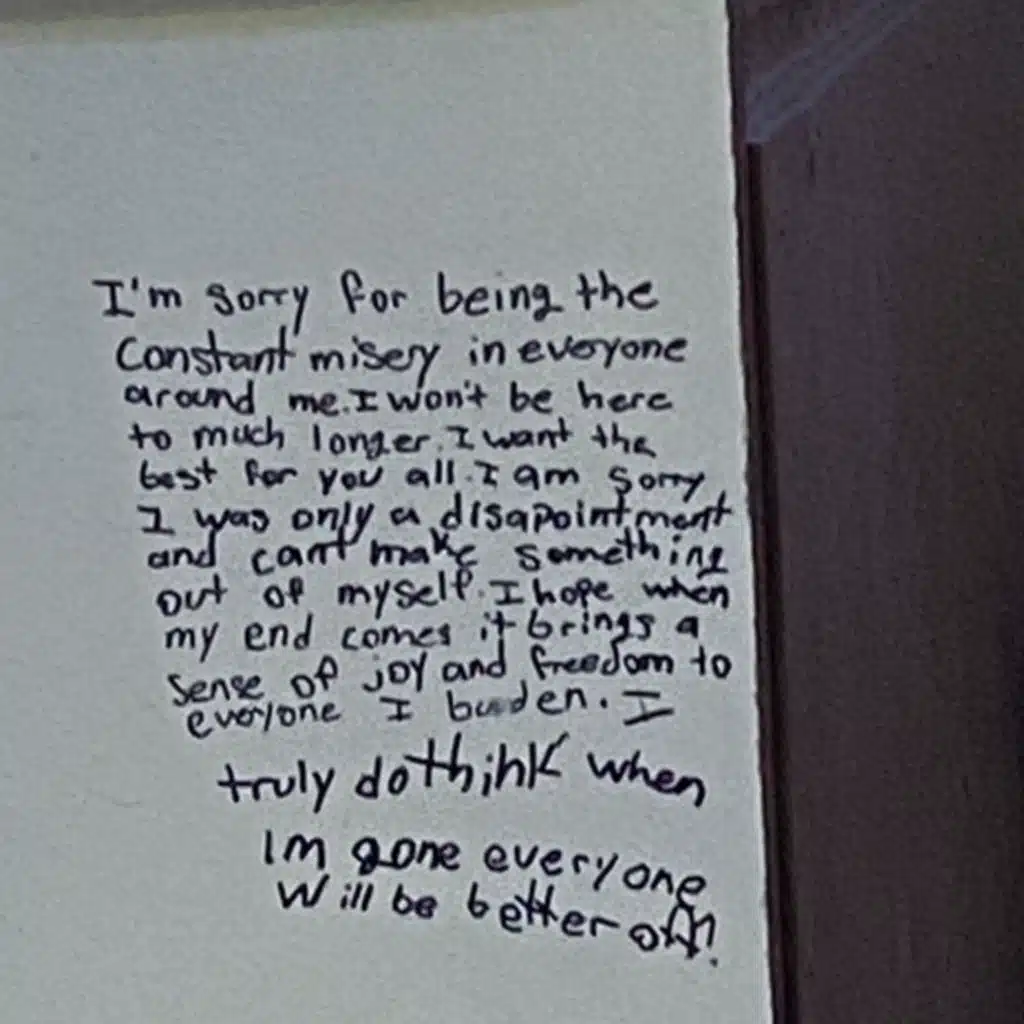 I'm sorry for being the
constant misery in everyone
around me. I won't be here
to much longer. I want the
best for you all. I am sorry
I was only a disapointment
and cant make something
out of myself. I hope when
my end comes it brings a
sense of joy and freedom to
everyone I burden. I
truly do think when
Im gone everyone
will be better off!